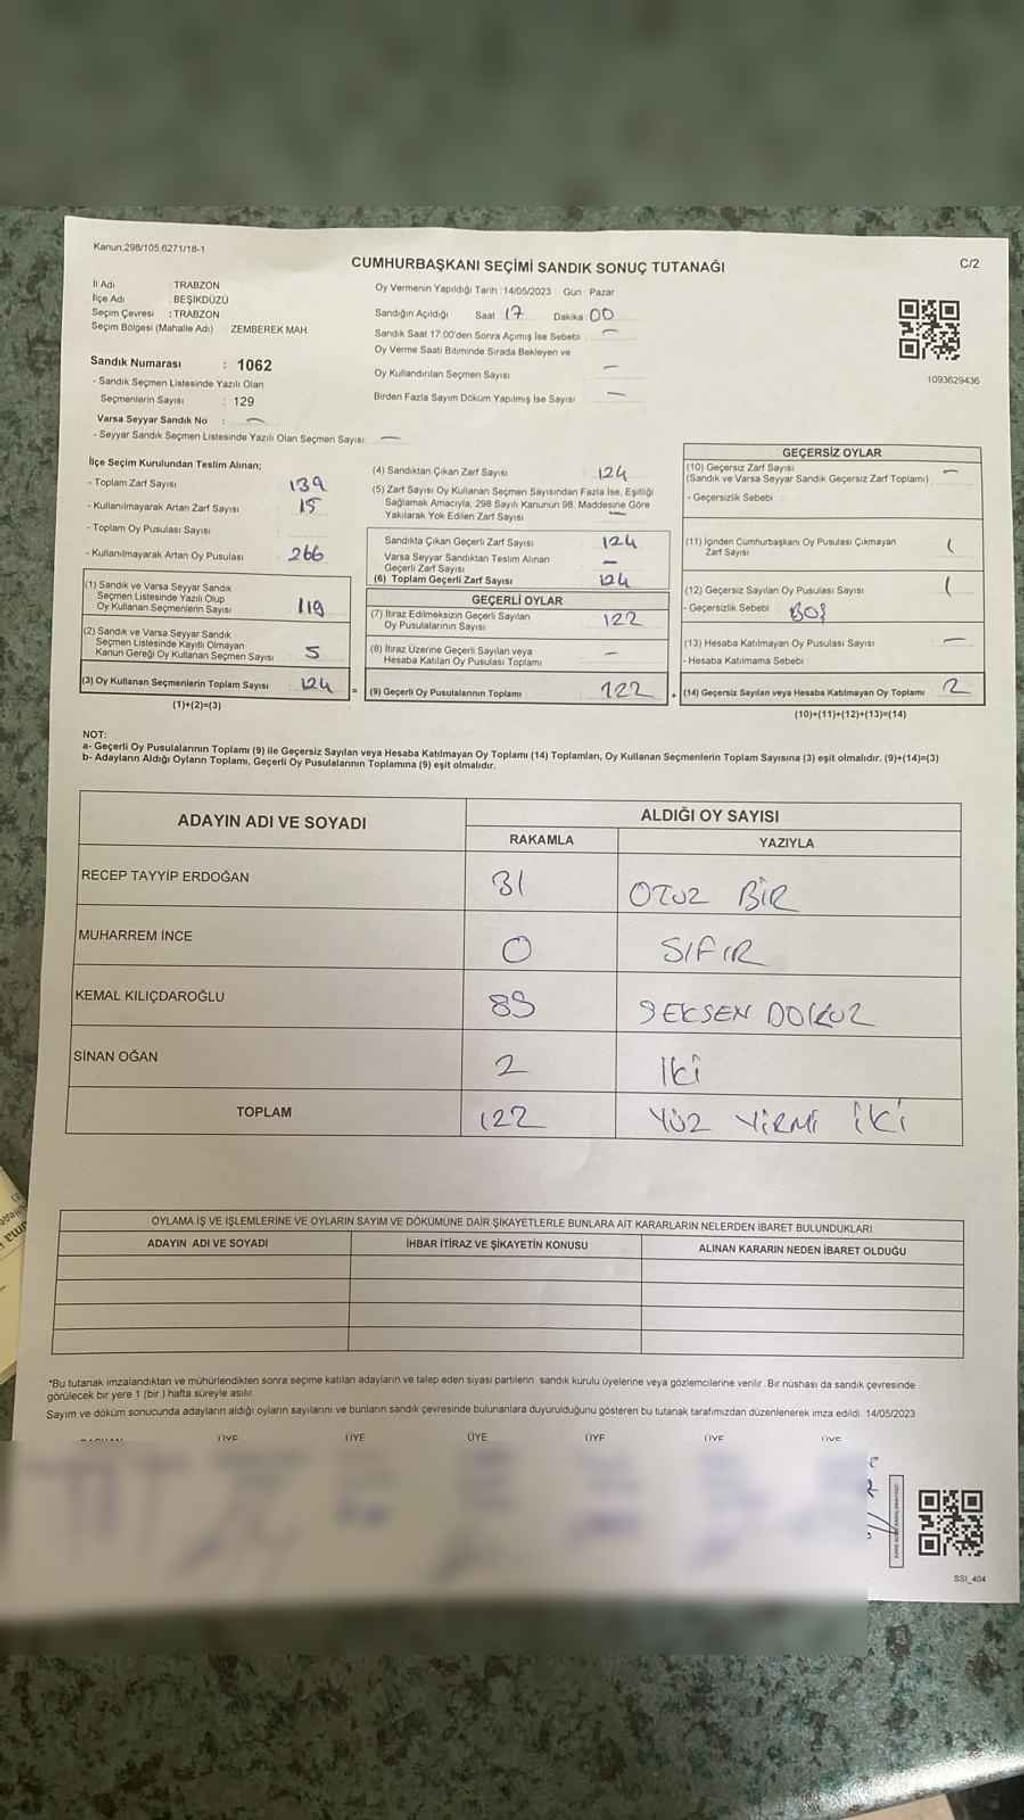 Kanun:298/105.6271/18-1
CUMHURBAŞKANI SEÇİMİ SANDIK SONUÇ TUTANAĞI
C/2
İl Adı TRABZON
İlçe Adı BEŞİKDÜZÜ
Seçim Çevresi : TRABZON
Seçim Bölgesi (Mahalle Adı) ZEMBEREK MAH.
Sandık Numarası : 1062
- Sandık Seçmen Listesinde Yazılı Olan
Seçmenlerin Sayısı : 129
Varsa Seyyar Sandık No : —
- Seyyar Sandık Seçmen Listesinde Yazılı Olan Seçmen Sayısı —
Oy Vermenin Yapıldığı Tarih : 14/05/2023 Gün : Pazar
Sandığın Açıldığı Saat 17 Dakika 00
Sandık Saat 17:00'den Sonra Açımış İse Sebebi —
Oy Verme Saati Bitiminde Sırada Bekleyen ve
Oy Kullandırılan Seçmen Sayısı —
Birden Fazla Sayım Döküm Yapılmış İse Sayısı —
1093629436
İlçe Seçim Kurulundan Teslim Alınan;
- Toplam Zarf Sayısı 139
- Kullanılmayarak Artan Zarf Sayısı 15
- Toplam Oy Pusulası Sayısı
- Kullanılmayarak Artan Oy Pusulası 266
(1) Sandık ve Varsa Seyyar Sandık
Seçmen Listesinde Yazılı Olup
Oy Kullanan Seçmenlerin Sayısı 119
(2) Sandık ve Varsa Seyyar Sandık
Seçmen Listesinde Kayıtlı Olmayan
Kanun Gereği Oy Kullanan Seçmen Sayısı 5
(3) Oy Kullanan Seçmenlerin Toplam Sayısı 124
(1)+(2)=(3)
(4) Sandıktan Çıkan Zarf Sayısı 124
(5) Zarf Sayısı Oy Kullanan Seçmen Sayısından Fazla İse, Eşitliği
Sağlamak Amacıyla, 298 Sayılı Kanunun 98. Maddesine Göre
Yakılarak Yok Edilen Zarf Sayısı —
Sandıkta Çıkan Geçerli Zarf Sayısı 124
Varsa Seyyar Sandıktan Teslim Alınan
Geçerli Zarf Sayısı —
(6) Toplam Geçerli Zarf Sayısı 124
GEÇERLİ OYLAR
(7) İtiraz Edilmeksizin Geçerli Sayılan
Oy Pusulalarının Sayısı 122
(8) İtiraz Üzerine Geçerli Sayılan veya
Hesaba Katılan Oy Pusulası Toplamı —
= (9) Geçerli Oy Pusulalarının Toplamı 122
GEÇERSİZ OYLAR
(10) Geçersiz Zarf Sayısı —
(Sandık ve Varsa Seyyar Sandık Geçersiz Zarf Toplamı)
- Geçersizlik Sebebi
(11) İçinden Cumhurbaşkanı Oy Pusulası Çıkmayan
Zarf Sayısı 1
(12) Geçersiz Sayılan Oy Pusulası Sayısı 1
- Geçersizlik Sebebi BOŞ
(13) Hesaba Katılmayan Oy Pusulası Sayısı —
- Hesaba Katılmama Sebebi
+ (14) Geçersiz Sayılan veya Hesaba Katılmayan Oy Toplamı 2
(10)+(11)+(12)+(13)=(14)
NOT:
a- Geçerli Oy Pusulalarının Toplamı (9) ile Geçersiz Sayılan veya Hesaba Katılmayan Oy Toplamı (14) Toplamları, Oy Kullanan Seçmenlerin Toplam Sayısına (3) eşit olmalıdır. (9)+(14)=(3)
b- Adayların Aldığı Oyların Toplamı, Geçerli Oy Pusulalarının Toplamına (9) eşit olmalıdır.
ADAYIN ADI VE SOYADI ALDIĞI OY SAYISI
RAKAMLA YAZIYLA
RECEP TAYYİP ERDOĞAN 31 OTUZ BİR
MUHARREM İNCE 0 SIFIR
KEMAL KILIÇDAROĞLU 89 SEKSEN DOKUZ
SİNAN OĞAN 2 İKİ
TOPLAM 122 YÜZ YİRMİ İKİ
OYLAMA İŞ VE İŞLEMLERİNE VE OYLARIN SAYIM VE DÖKÜMÜNE DAİR ŞİKAYETLERLE BUNLARA AİT KARARLARIN NELERDEN İBARET BULUNDUKLARI
ADAYIN ADI VE SOYADI İHBAR İTİRAZ VE ŞİKAYETİN KONUSU ALINAN KARARIN NEDEN İBARET OLDUĞU
*Bu tutanak imzalandıktan ve mühürlendikten sonra seçime katılan adayların ve talep eden siyasi partilerin sandık kurulu üyelerine veya gözlemcilerine verilir. Bir nüshası da sandık çevresinde
görülecek bir yere 1 (bir) hafta süreyle asılır.
Sayım ve döküm sonucunda adayların aldığı oyların sayılarını ve bunların sandık çevresinde bulunanlara duyurulduğunu gösteren bu tutanak tarafımızdan düzenlenerek imza edildi. 14/05/2023
ÜYE ÜYE ÜYE ÜYE ÜYE ÜYE
SSI_404